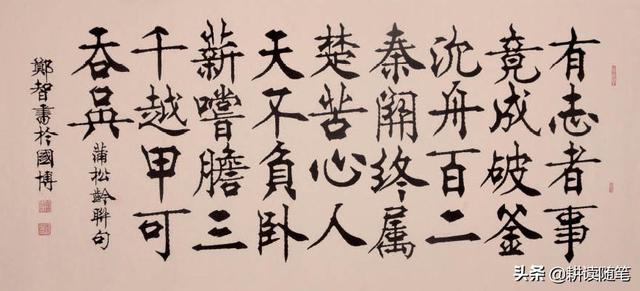 有志者事
竟成破釜
沈舟百二
秦關终属
楚苦心人
天不負卧
薪嚐膽三
千越甲可
吞吳
蒲松齡聯句
鄭智書於國博
头条 @耕读随笔